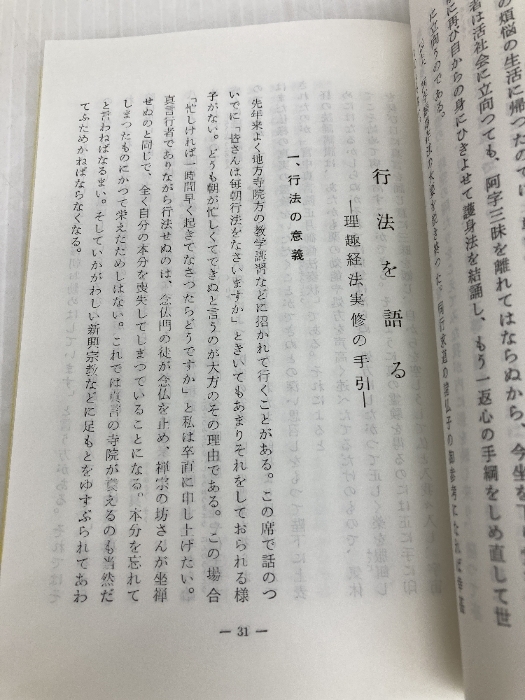 の煩悩の生活に帰つたので
者は活社会に立向つても、阿字三昧を離れてはならぬから、今坐を
に再び自からの身にひきよせて護身法を結誦し、もう一返心の手綱をしめ直して世
に立向うのである。
行法を語る
―理趣経法実修の手引―
一、行法の意義
先年来よく地方寺院方の教学講習などに招かれて行くことがある。この席で話のつ
いでに「皆さんは毎朝行法をなさいますか」ときいてもあまりそれをしておられる様
子がない。どうも朝が忙しくてできぬと言うのが大方のその理由である。この場合
「忙しければ一時間早く起きてなさつたらどうですか」と私は卒直に申し上げたい。
真言行者でありながら行法せぬのは、念仏門の徒が念仏を止め、禅宗の坊さんが坐禅
せぬのと同じで、全く自分の本分を喪失してしまつていることになる。本分を忘れて
しまつたものにかつて栄えたためしはない。これでは真言の寺院が衰えるのも当然だ
と言わねばなるまい。そしていかがわしい新興宗教などに足もとをゆすぶられてあわ
てふためかねばならなくなる。
― 31 ―